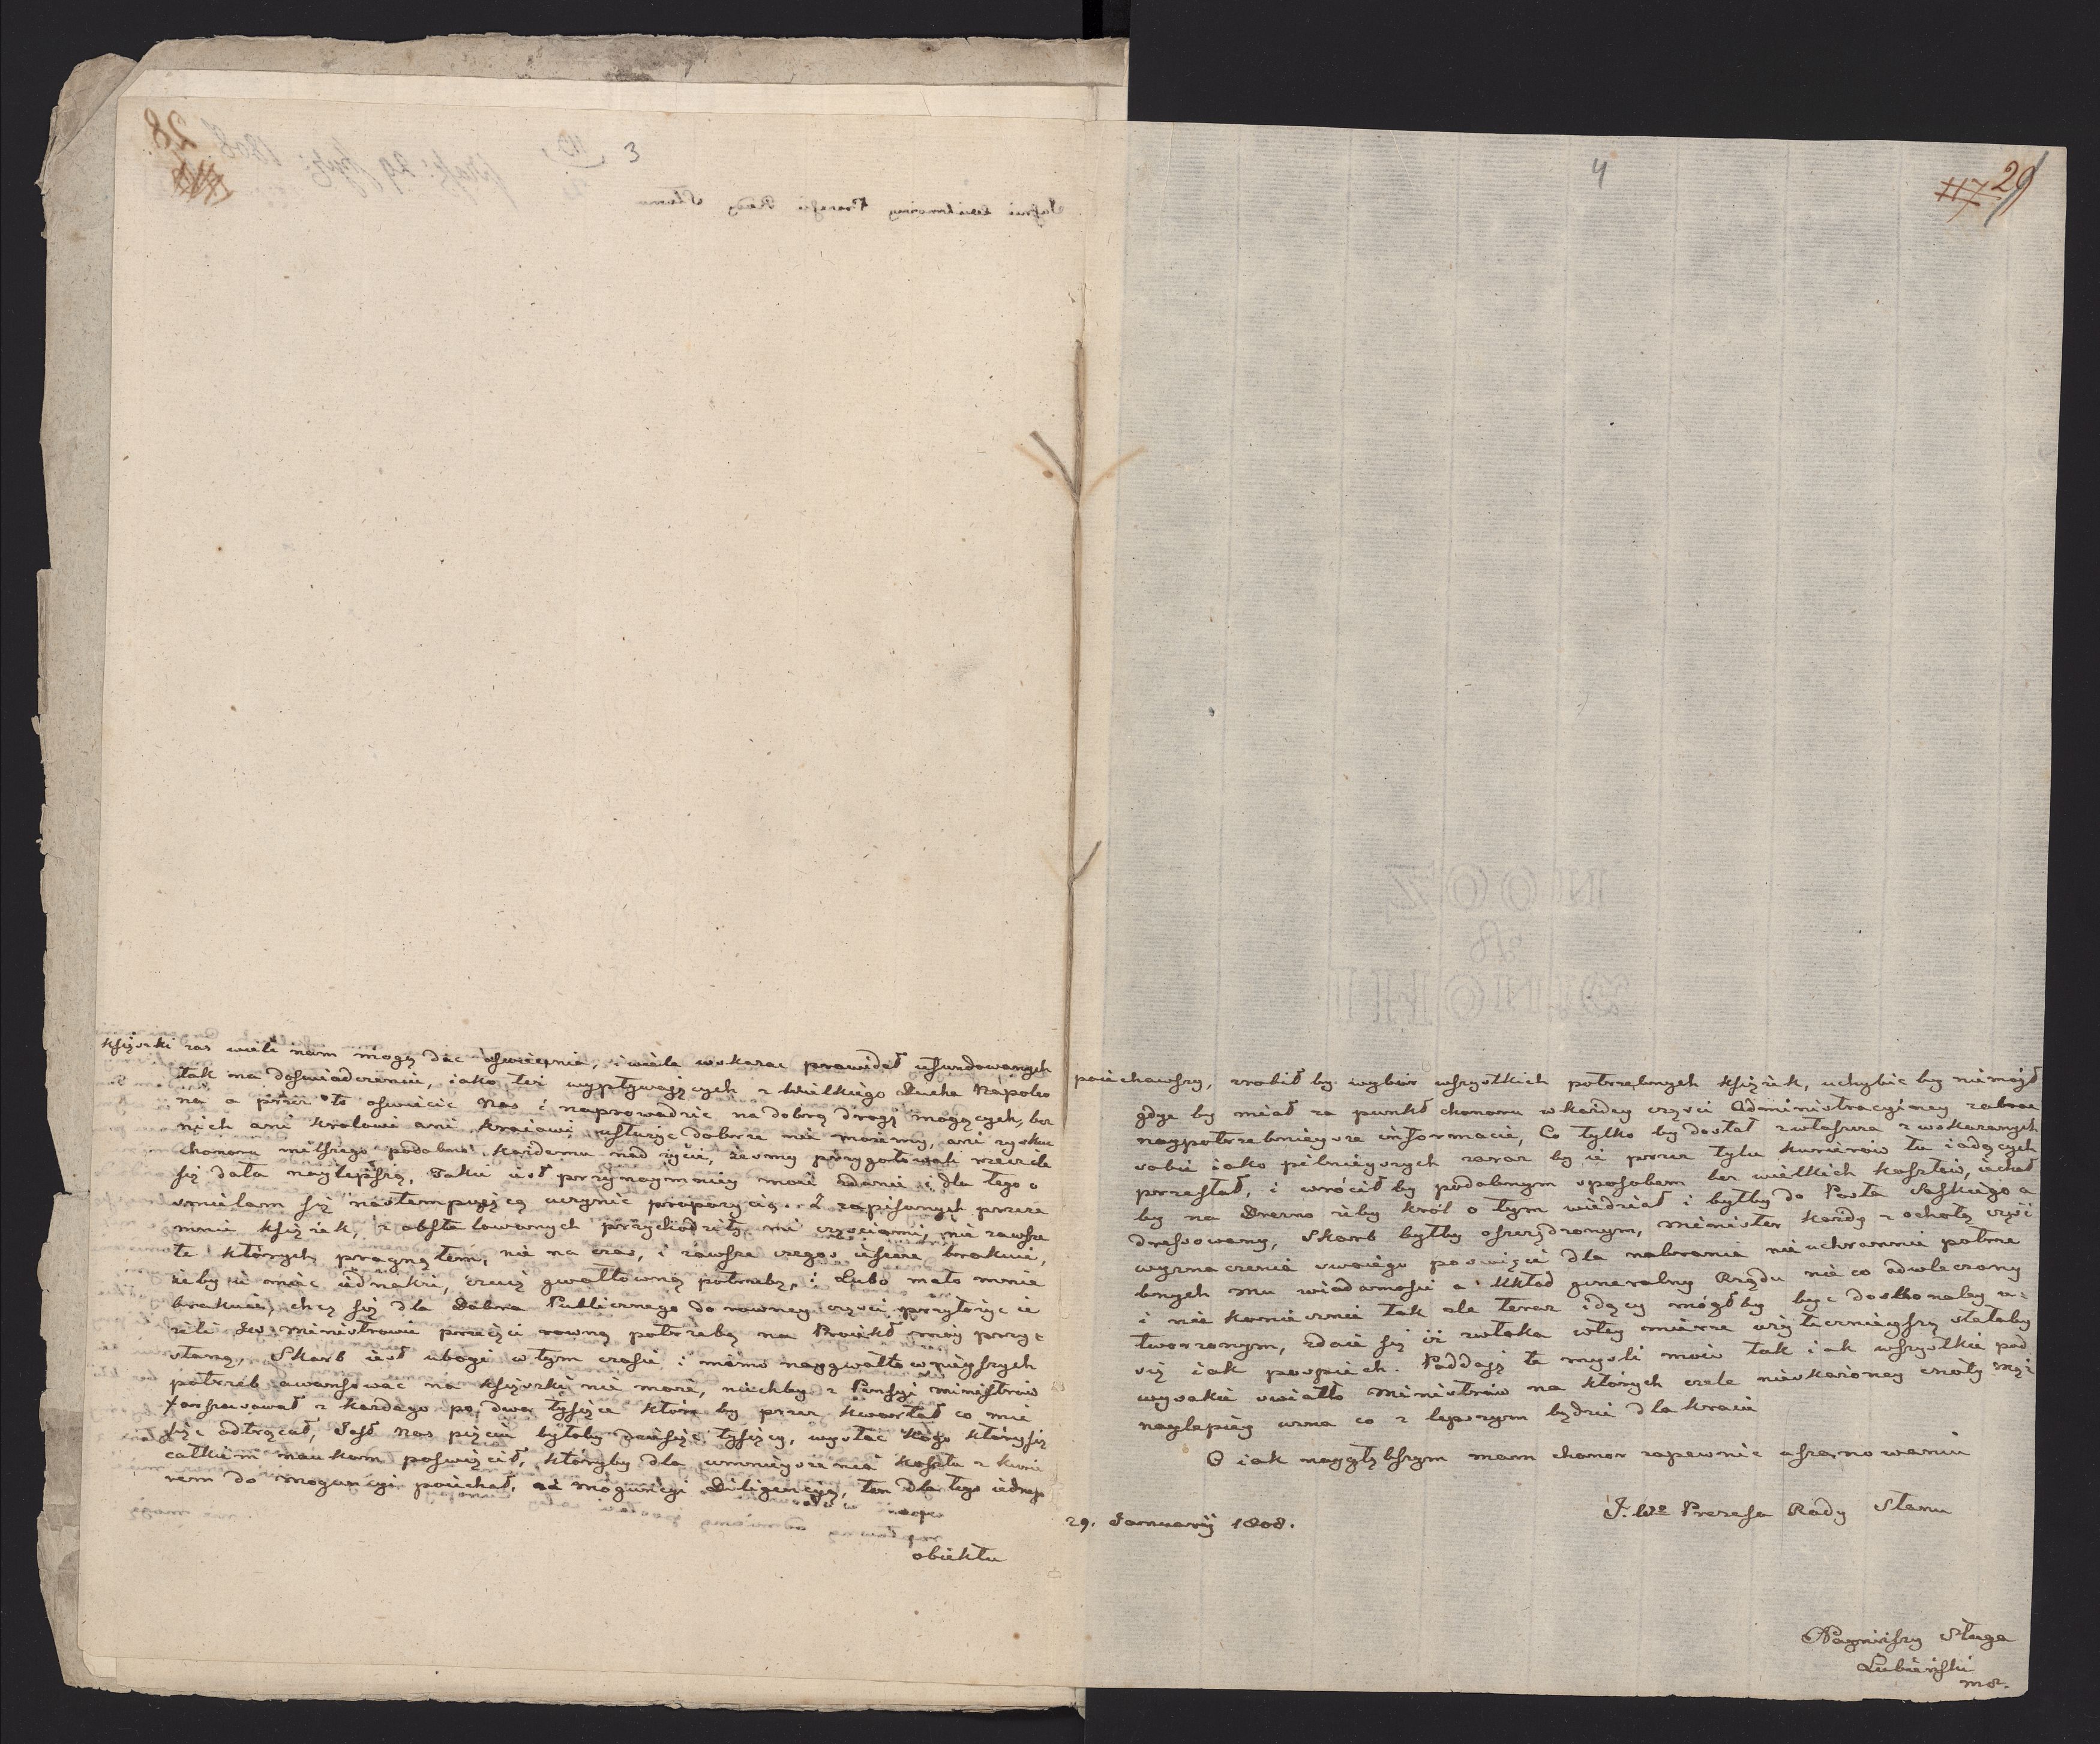 3
książki zas wiele nam mogą dac oswiecenia, i wiele wskazac prawideł ufundowanych
tak na doswiadczeniu, iako też wypływaiących z Wielkiego Ducha Napoleo
na a przez to oswiecic Nas i naprowadzic na dobrą drogę mogących, bez
nich ani Krolowi ani Kraiowi usłużyc dobrze nie możemy, ani zysku
chonoru milszego podobno każdemu nad życie, żesmy przygotowali rzeczele
się dała naylepszą, Takie iest przynaymniey moie zdanie i dla tego o
smielam się nastempuiącą uczynic propozycią. Z zapisanych przeze
mnie książek, i obstalowanych przychodziły mi częsciami, nie zawsze
te których pragnąłem, nie na czas, i zawsze czegos ieszcze brakuie,
żeby ie miec iednakże, czuię gwałtowną potrzebę, i Lubo mało mnie
brakuie, chcę się dla Dobra Publicznego do rowney częsci przyłożyc ie
żeli JW Ministrowie przeięci rowną potrzebą na Proiekt moy przy
staną, Skarb iest ubogi w tym czasie i mimo naygwałtownieyszych
potrzeb awansowac na książki nie może, niechby z Pensyi Ministrow
forszusował z każdego po dwa tysiące ktore by przez kwartał co mie
siąc odtrącał, Jest Nas pięciu byłoby dziesięc tysięcy, wysłac kogo ktoryby się
całkiem naukom poswięcił, ktoryby dla umnieyszenia kosztu z kurie
rem do Moguncyi poiechał, od Moguncyi Diligencyą, ten dla tego iednego
obiektu
4
117 29
poiechawszy, zrobił by wybor wszystkich potrzebnych książek, uchybic by niemógł
gdyż by miał za punkt chonoru w każdey częsci Administracyiney zebrac
naypotrzebnieysze informacie, Co tylko by dostał zwłaszcza z wskazanych
sobie iako pilnieyszych zaraz by ie przez tylu kurierów tu iadących
przesłał, i wrócił by podobnym sposobem bez wielkich kosztów, iechał
by na Drezno żeby Król o tym wiedział i byłby do Posła Saskiego a
dressowany, Skarb byłby oszczędzonym, Minister każdy z ochotą częsc
wyznaczenia swoiego poswięci dla nabrania nieuchronnie potrze
bnych mu wiadomosci a Układ generalny Rządu nieco odwleczony
i nie koniecznie tak ale teraz idący mógłby byc doskonaley u=
tworzonym, zdaie się iż zwłoka w tey mierze użytecznieyszą stałaby
się iak pospiech. Poddaię te mysli moie tak iak wszystkie pod
wysokie swiatło Ministrów na których czele nieskażoney cnoty Mąż
naylepiey uzna co z lepszym będzie dla kraiu
O iak naygłębszym mam chonor zapewnic uszanowaniu
J. We Prezesa Rady Stanu
29. Januarij 1808.
Nayniższy Sługa
Łubieński
mś.